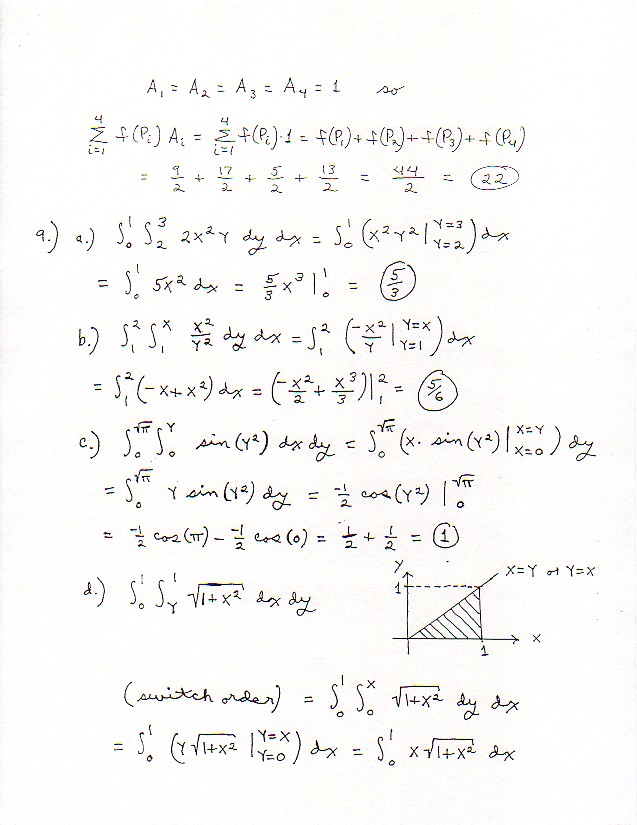 A₁ = A₂ = A₃ = A₄ = 1 so
∑_{i=1}^{4} f(Pᵢ) Aᵢ = ∑_{i=1}^{4} f(Pᵢ)·1 = f(P₁) + f(P₂) + f(P₃) + f(P₄)
= 9/2 + 17/2 + 5/2 + 13/2 = 44/2 = 22
9.) a.) ∫₀¹ ∫₂³ 2x²y dy dx = ∫₀¹ (x²y² |_{y=2}^{y=3}) dx
= ∫₀¹ 5x² dx = 5/3 x³ |₀¹ = 5/3
b.) ∫₁² ∫₁ˣ x²/y² dy dx = ∫₁² (-x²/y |_{y=1}^{y=x}) dx
= ∫₁² (-x + x²) dx = (-x²/2 + x³/3) |₁² = 5/6
c.) ∫₀^{√π} ∫₀^{y} sin(y²) dx dy = ∫₀^{√π} (x· sin(y²) |_{x=0}^{x=y}) dy
= ∫₀^{√π} y sin(y²) dy = -1/2 cos(y²) |₀^{√π}
= -1/2 cos(π) - -1/2 cos(0) = 1/2 + 1/2 = 1
d.) ∫₀¹ ∫_y¹ √(1+x²) dx dy
y
1
x=y or y=x
x
1
(switch order) = ∫₀¹ ∫₀ˣ √(1+x²) dy dx
= ∫₀¹ (y√(1+x²) |_{y=0}^{y=x}) dx = ∫₀¹ x√(1+x²) dx